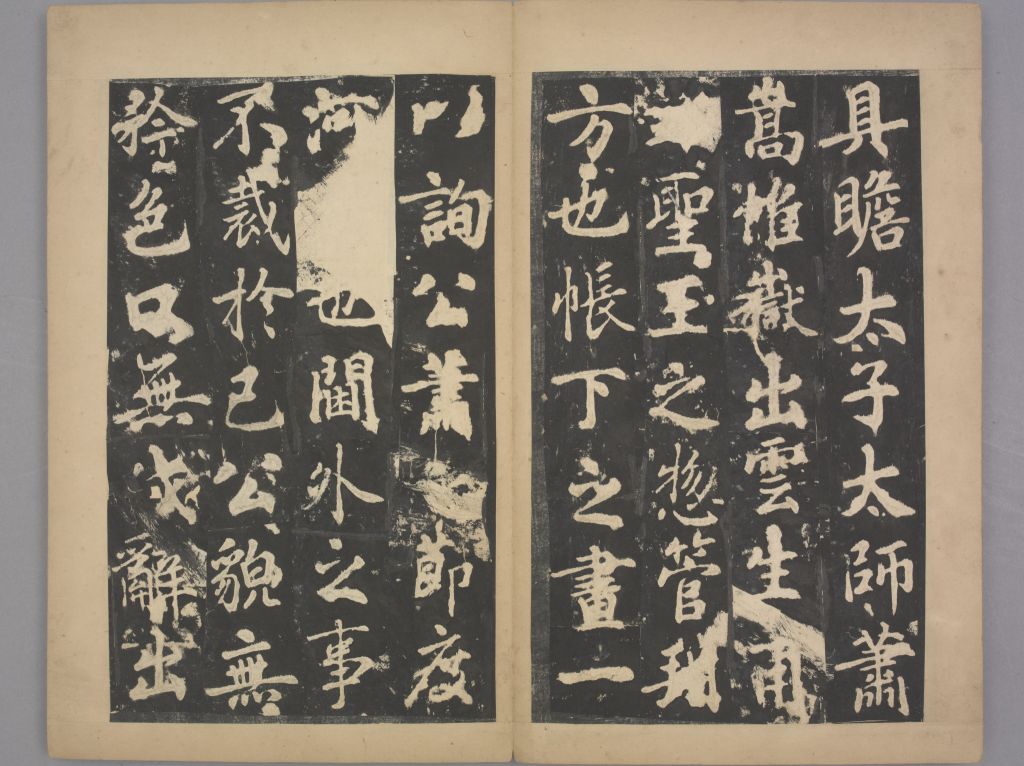 具瞻太子太師蕭
嵩惟嶽出雲生甫
聖王之惣管朔
方也帳下之畫一
以詢公蕭節度
河也閫外之事
不裁於己公貌無
矜色口無辭出